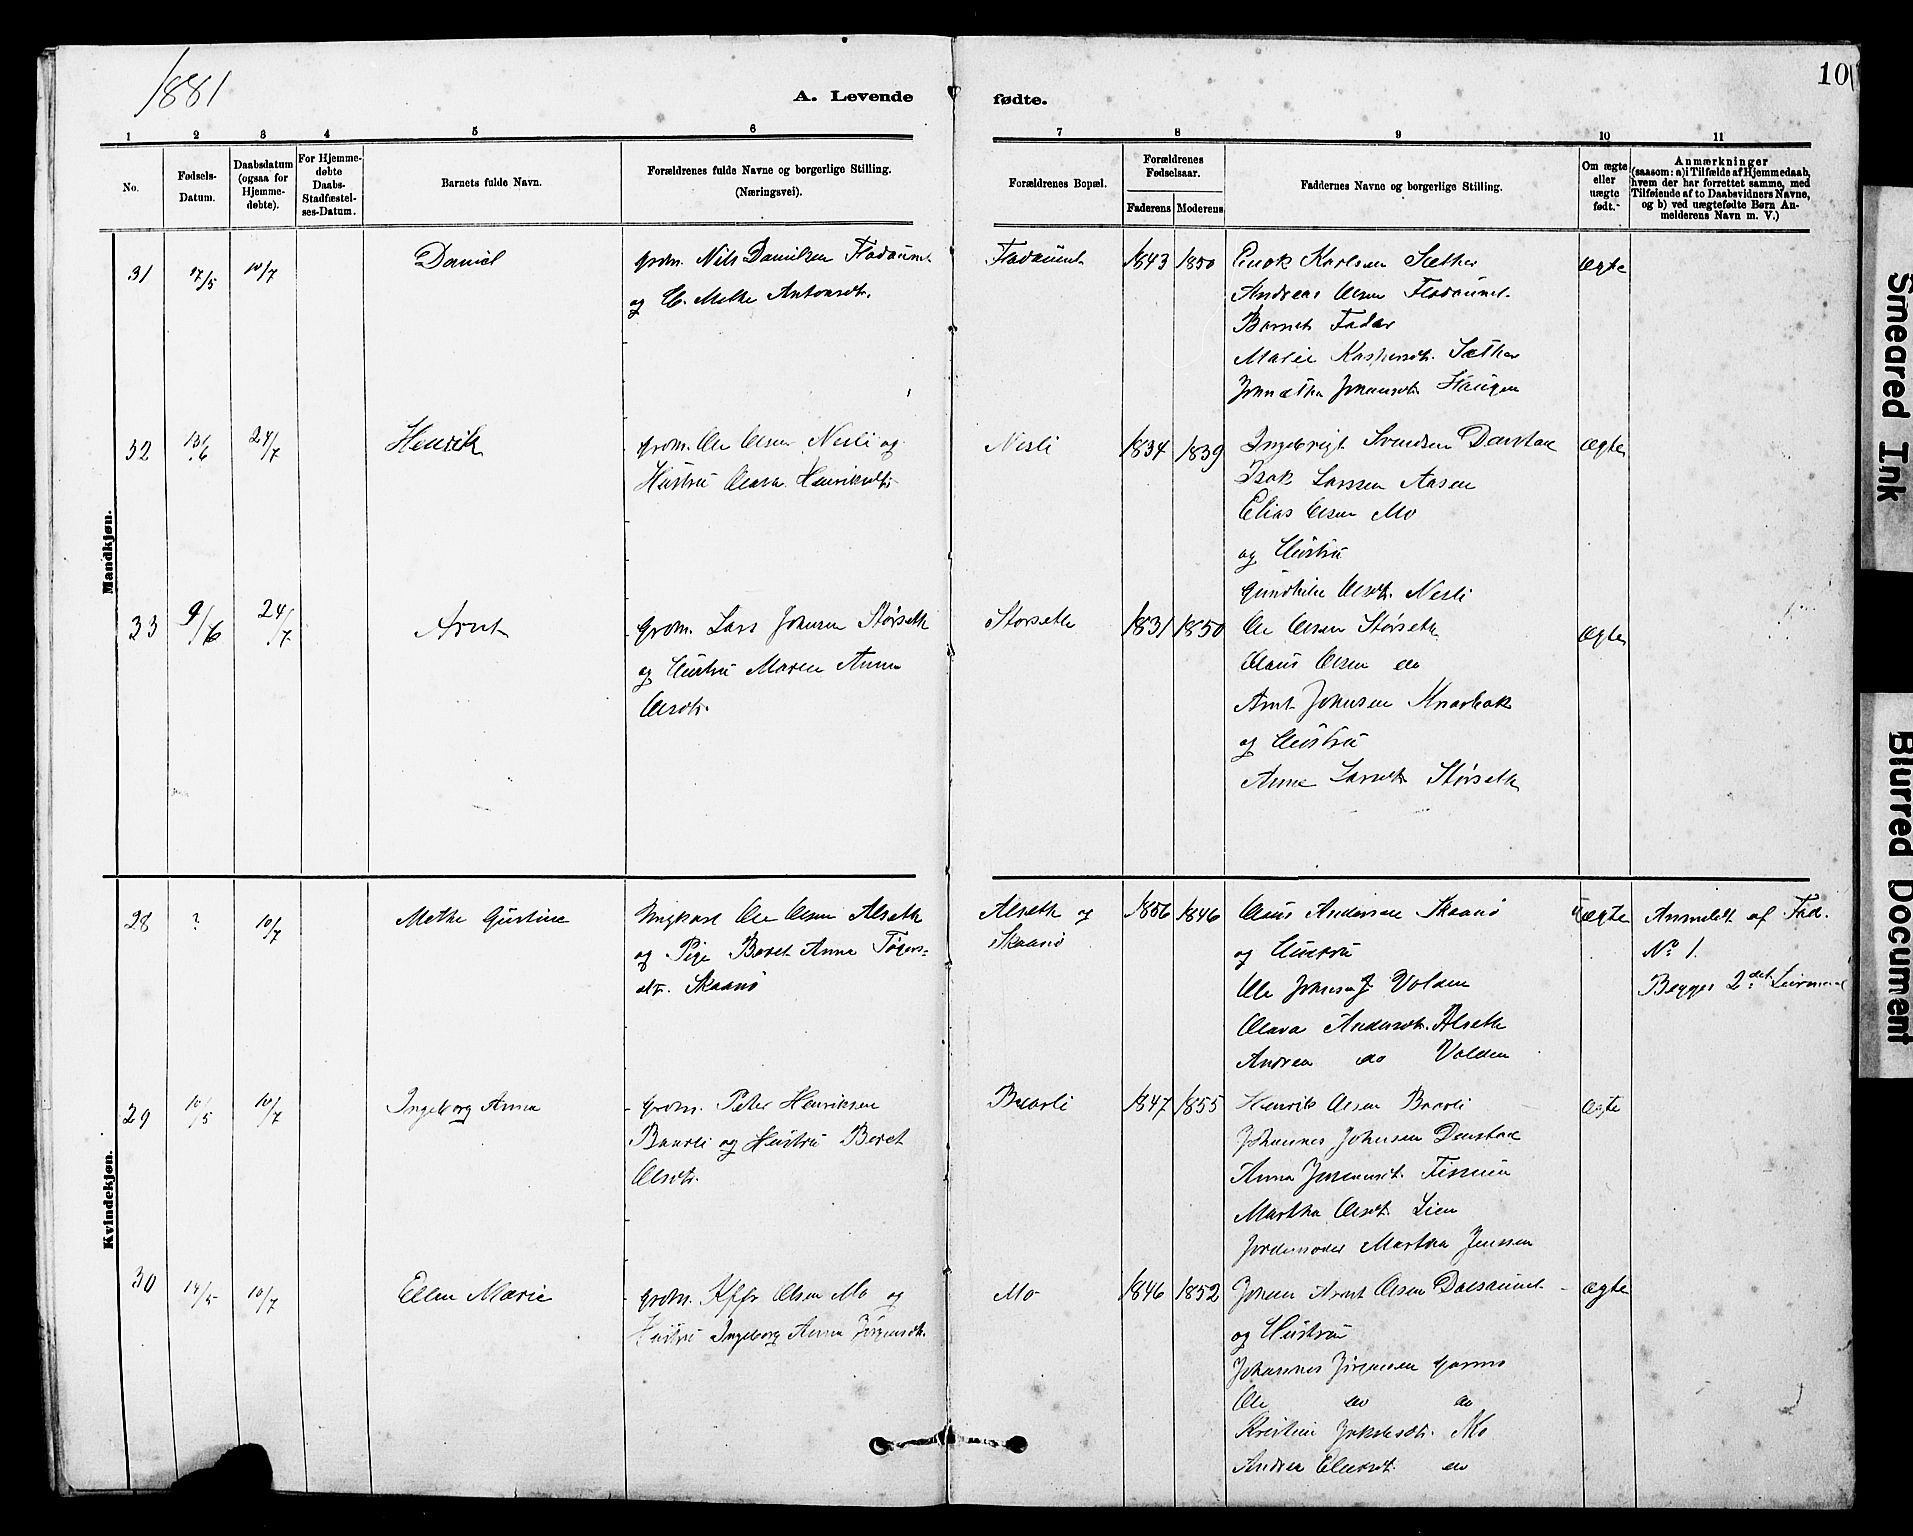 1881
A. Levende fødte.
10
1 2 3 4 5 6 7 8 9 10 11
No.
Fødsels-
Datum.
Daabsdatum
(ogsaa for
Hjemme-
døbte).
For Hjemme-
døbte
Daabs-
Stadfæstel-
ses-Datum.
Barnets fulde Navn.
Forældrenes fulde Navne og borgerlige Stilling.
(Næringsvei).
Forældrenes Bopæl.
Forældrenes
Fødselsaar.
Faderens Moderens
Faddernes Navne og borgerlige Stilling.
Om ægte
eller
uægte
født.
Anmærkninger
(saasom: a) i Tilfælde af Hjemmedaab,
hvem der har forrettet samme, med
Tilføiende af to Daabsvidners Navne,
og b) ved uægtefødte Børn An-
melderens Navn m. V.)
Mandkjøn.
31 17/5 10/7 Daniel
grdm. Nils Danielsen Fladaunet
og H. Methe Antonsdt.
1843 1850
Enok Karlsen Sæther
Andreas Olsen Fladaunet.
Barnets Fader
Sæther
Johansdt. Haugen
ægte
32 24/7 Henrik
grdm. Ole Olsen Nesli og
Hustru Olava Henriksdt.
Nesli 1834 1839
Ingebrigt Svendsen Denstad
Isak Larssen Aasen
Elias Olsen Mo
og Hustru
Gunhild Olsdt. Nesli
ægte
33 9/6 24/7 Arnt
grdm. Lars Johnsen Størseth
og Hustru Maren Anna
Olsdt.
Størseth 1831 1850
Ole Olsen Størseth
Claus Olsen do
Arnt Johnsen
og Hustru
Anne Larsdt. Størseth
ægte
Kvindekjøn.
28 ? 10/7 Methe Gustine
Ungkarl Ole Olsen Alseth
og Pige Beret Anna
dtr. Skaanø
Alseth og
Skaanø
1856 1846
Claus Andersen Skaanø
og Hustru
Ole Johnsen Volden
Olava Andersdt. Alseth
Andrea do Volden
uægte
Anmeldt af Fad.
No 1.
Begges 2det Leiermaal
29 10/5 10/7 Ingeborg Anna
grdm. Peter Henriksen
Baarli og Hustru Beret
Olsdt.
Baarli 1847 1855
Henrik Olsen Baarli
Johannes Johnsen Denstad
Anna Johannsdt. Tissum
Martha Olsdt. Lien
Jordemoder Martha Jenssen
ægte
30 14/5 10/7 Ellen Marie
grdm. Olsen Mo og
Hustru Ingeborg Anna Jørgensdt.
Mo 1846 1852
Johan Arnt Olsen Dalsaunet
og Hustru
Johannes Jørgensen Garmo
Ole do do
Kristine Jakobsdt. Mo
Andrea Ellevsdt. do
ægte
Smeared Ink
Blurred Document